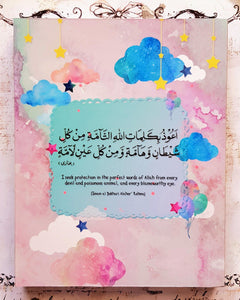 اَعُوْذُ بِكَلِمَاتِ اللهِ التَّامَّةِ مِنْ كُلِّ
شَيْطَانٍ وَهَامَّةٍ وَمِنْ كُلِّ عَيْنٍ لَامَّةٍ
I seek protection in the perfect words of Allah from every
devil and poisonous animal, and every blameworthy eye.